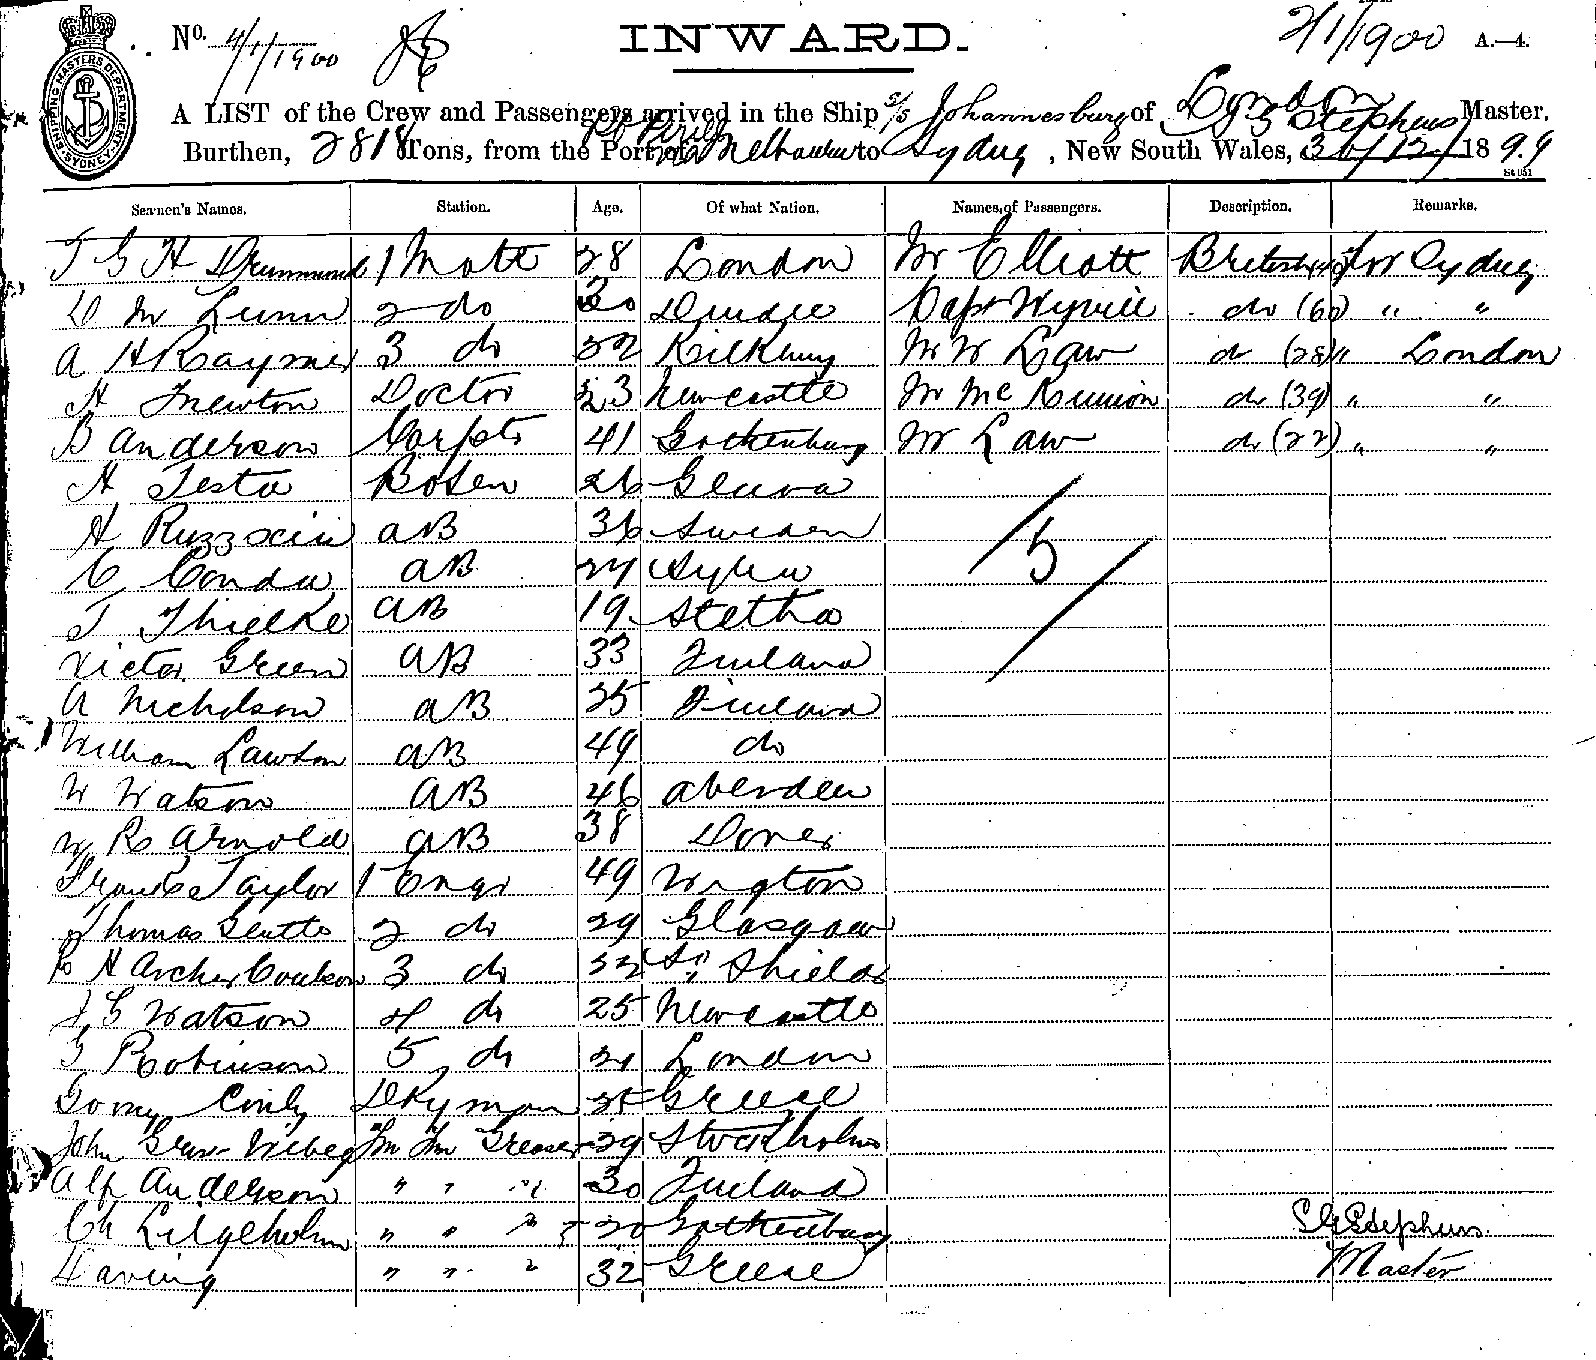 No. 4/1/1900 INWARD. 2/1/1900 A.—4.
SHIPPING MASTERS DEPARTMENT SYDNEY
A LIST of the Crew and Passengers arrived in the Ship s/s Johannesburg of London Stephens Master,
Burthen, 2818 Tons, from the Port of Melbourne to Sydney, New South Wales, 30/12/1899
Seamen's Names. Station. Age. Of what Nation. Names of Passengers. Description. Remarks.
T G H Drummond 1 Mate 28 London Mr Elliott British for Sydney
D M Lunn 2 do 30 Dundee Capt Wyvill do (60) " "
A H Raymer 3 do 22 Kilkenny Mr W Law do (28) " London
H Newton Doctor 23 Newcastle Mr Mc do (39) " "
B Anderson Carptr 41 Gothenburg Mr Law do (22) " "
H Testa Bosen 26 Genoa
H AB 36 Sweden 5
C Conda AB 27
T Thielke AB 19
Victor Green AB 33 Finland
A Nicholson AB 25 Finland
William Lawson AB 49 do
W Watson AB 46 Aberdeen
W R Arnold AB 38 Dover
Francis Taylor 1 Engr 49 Wigton
Thomas 2 do 29 Glasgow
R H Archer Coulson 3 do 32 So Shields
J G Watson 4 do 25 Newcastle
G Robinson 5 do 21 London
Dkyman Greece
John Fm Fm Greaser 29 Stockholm
Alf Anderson " " " 30 Finland
Ch Liljeholm " " " 20 Gothenburg
" " " 32 Greece
S G Stephens.
Master